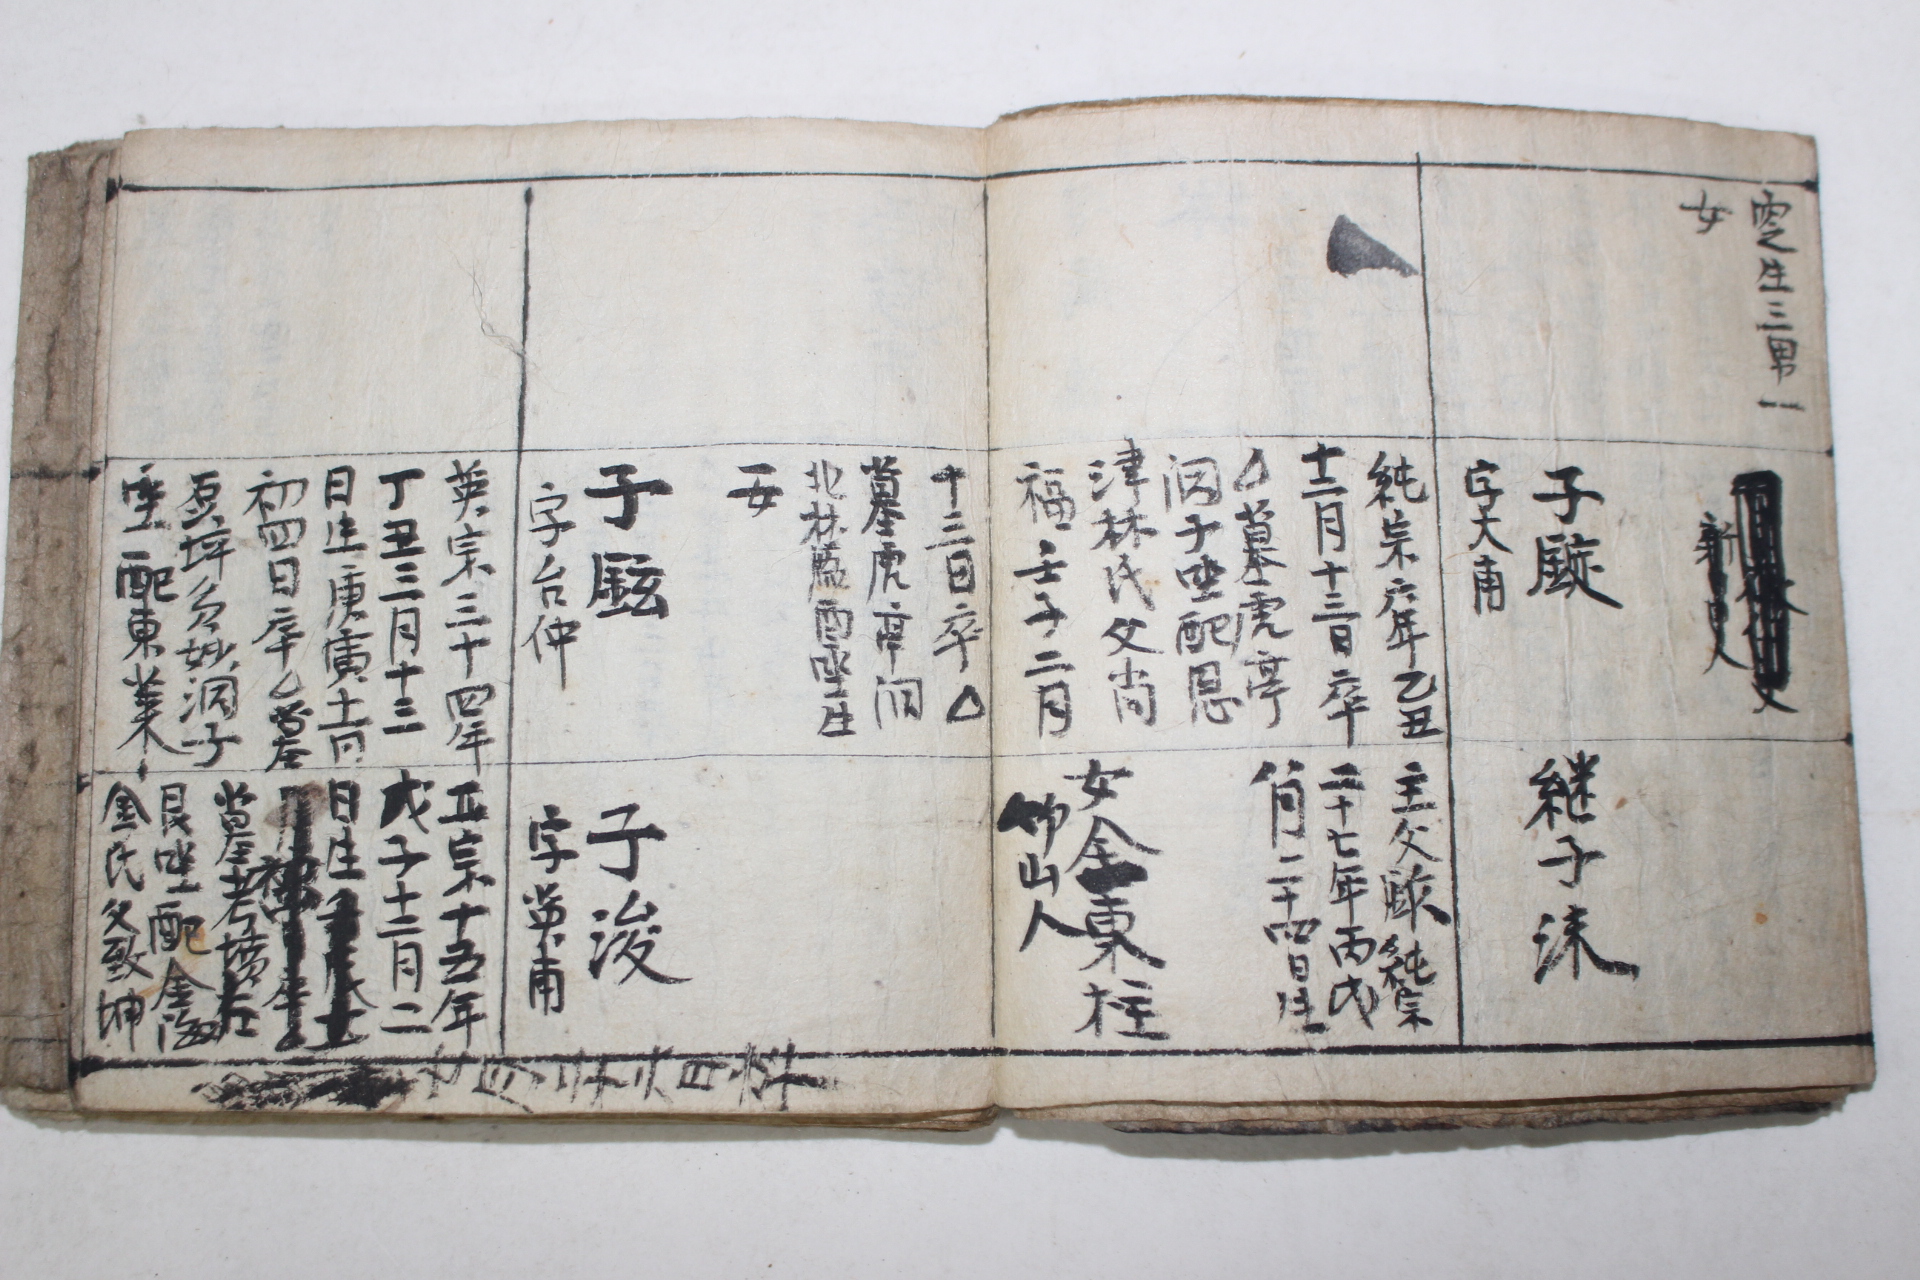 定生三男一
女
新
人
子
字大甫
純宗六年乙丑
十二月十三日卒
△墓虎亭
洞子坐配恩
津林氏父尚
福壬子二月
十三日卒△
墓虎亭洞
北林酉坐生
一女
子
字台仲
英宗三十四年
丁丑三月十三
日生庚寅十一月
初四日卒乙墓
坪多妙洞子
坐配東萊
継子沫
生父 純宗
二十七年丙戌
二十四日生
女金東柱
山人
子浚
字英甫
正宗十五年
戊子十二月二
日生
卒
墓考墳左
艮坐配金海
金氏父致坤